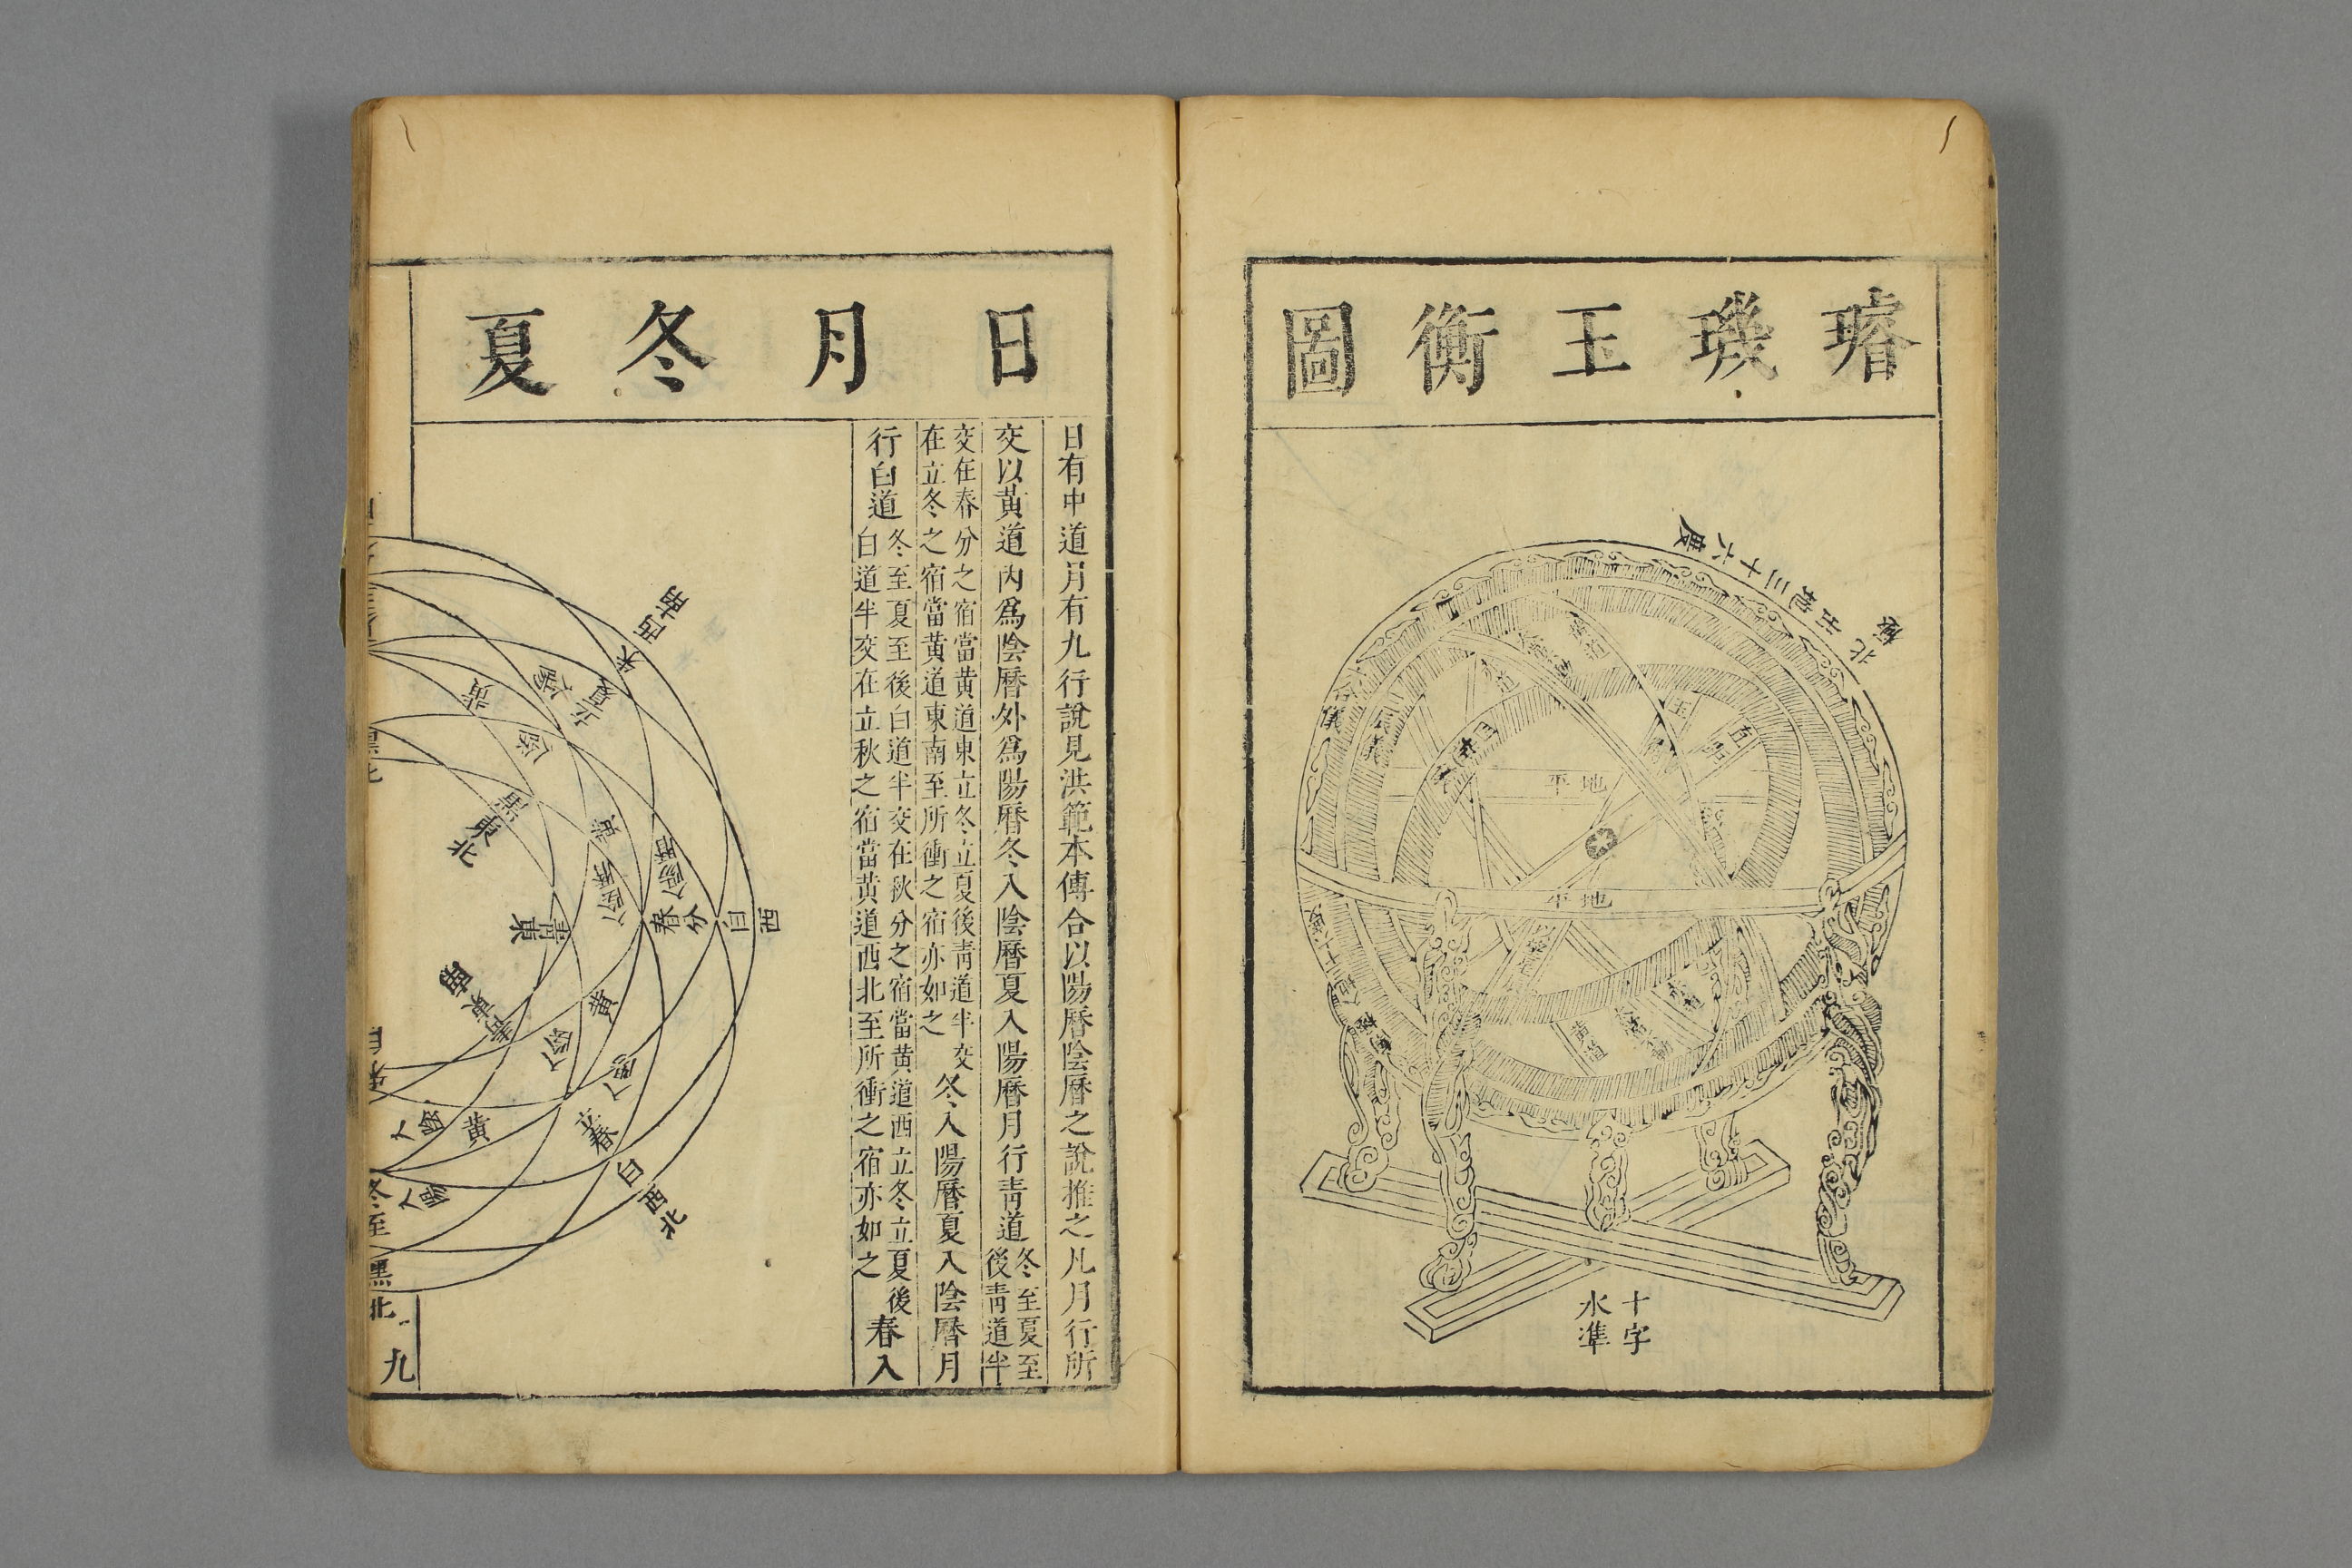 璿璣玉衡圖
北極出地三十六度
地平
地平
黃道
十字
水準
日月冬夏
日有中道月有九行說見洪範本傳合以陽曆陰曆之說推之凡月行所
交以黃道內爲陰曆外爲陽曆冬入陰曆夏入陽曆月行青道
冬至夏至
後青道半
交在春分之宿當黃道東立冬立夏後青道半交
在立冬之宿當黃道東南至所衝之宿亦如之
冬入陽曆夏入陰曆月
行白道
冬至夏至後白道半交在秋分之宿當黃道西立冬立夏後
白道半交在立秋之宿當黃道西北至所衝之宿亦如之
春入
西南
黑
東北
青
東
春分
白
西
黃
立春
白
西北
黃
冬至
黑
北
九